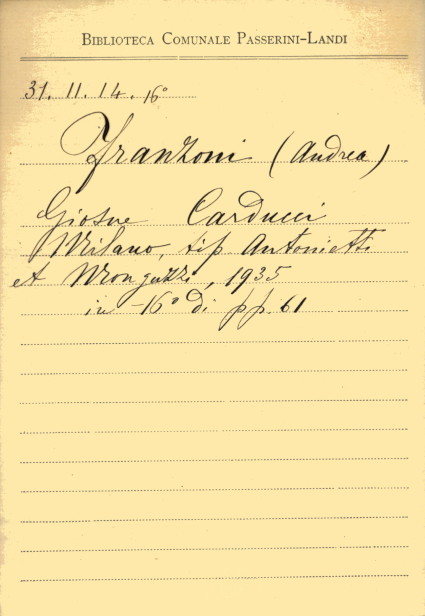 BIBLIOTECA COMUNALE PASSERINI-LANDI
31. 11. 14. 16°
Franzoni (Andrea)
Giosue Carducci
Milano, tip Antonietti
et Monguzzi, 1935
in -16° di pp. 61